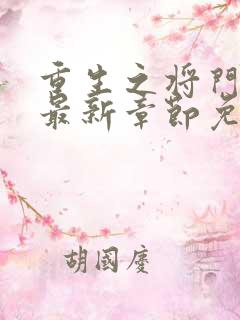 重生之将門
最新章節免
胡國慶